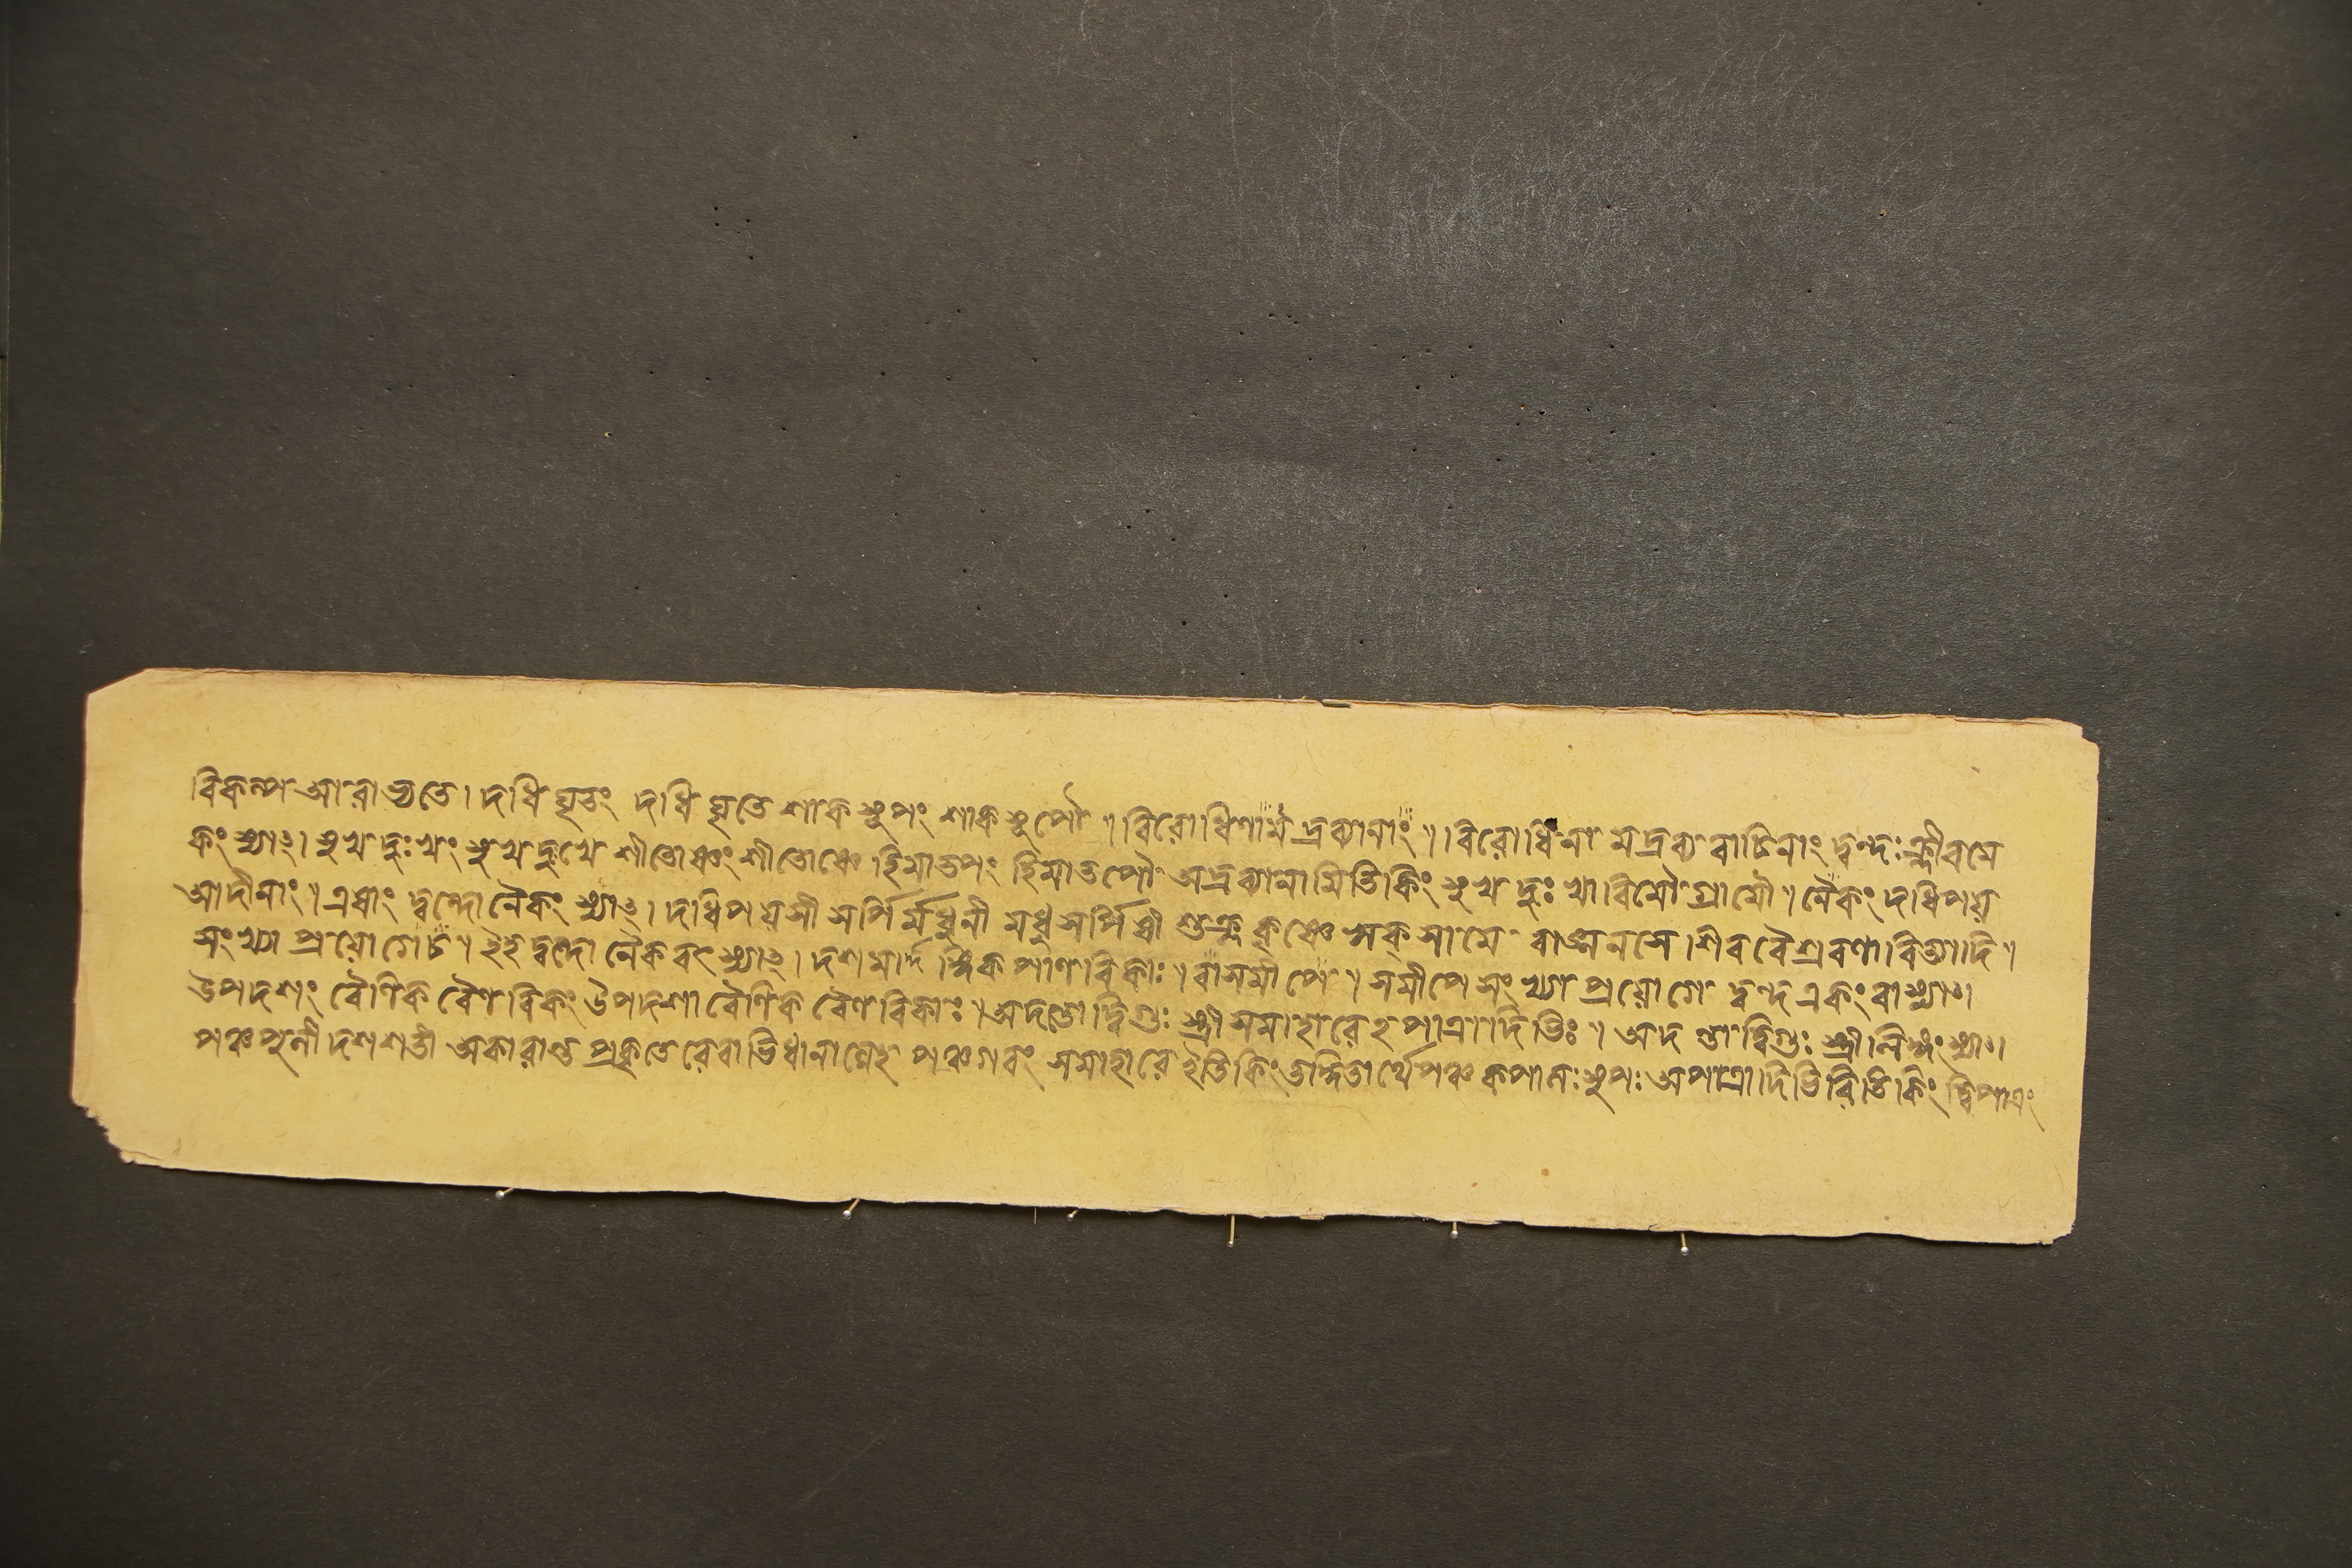 বিকল্প আরাভ্যতে। দধি ঘৃতং দধি ঘৃতে শাক সূপং শাক সূপৌ ॥ বিরোধিণামদ্রব্যানাং ॥ বিরোধিনা মদ্রব্য বাচিনাং দ্বন্দঃ ক্লীবমে
কং স্যাৎ। সুখ দুঃখং সুখ দুখে শীতোষ্ণং শীতোষ্ণে হিমাতপং হিমাতপৌ অদ্রব্যানামিতিকিং সুখ দুঃখাবিমৌ গ্রামৌ ॥ নৈকং দধিপয়
আদীনাং ॥ এষাং দ্বন্দো নৈকং স্যাৎ। দধিপয়সী সর্পির্মধুনী মধুসর্পিষী শুক্ল কৃষ্ণে ঋক্ সামে বাঙ্মনসে। শিব বৈশ্রবণাবিত্যাদি ॥
সংখ্যা প্রয়োগেচ ॥ ইহ দ্বন্দো নৈক বৎ স্যাৎ। দশ মার্দঙ্গিক পাণবিকাঃ ॥ বাসমীপে ॥ সমীপে সংখ্যা প্রয়োগে দ্বন্দ একং বাস্যাৎ।
উপদশং বৈণিক বৈণবিকং উপদশা বৈণিক বৈণবিকাঃ ॥ অদন্তাদ্বিগুঃ স্ত্রী সমাহারেঽপাত্রাদিভিঃ ॥ অদন্তাদ্বিগুঃ স্ত্রীলিঙ্গং স্যাৎ।
পঞ্চপুনী দশশতী অকারান্ত প্রকৃতেরেবাভিধানান্নেহ পঞ্চগবং সমাহারে ইতিকিং তদ্ধিতার্থে পঞ্চকপালঃ সুপঃ অপাত্রাদিভিরিতিকিং দ্বিপাত্রং